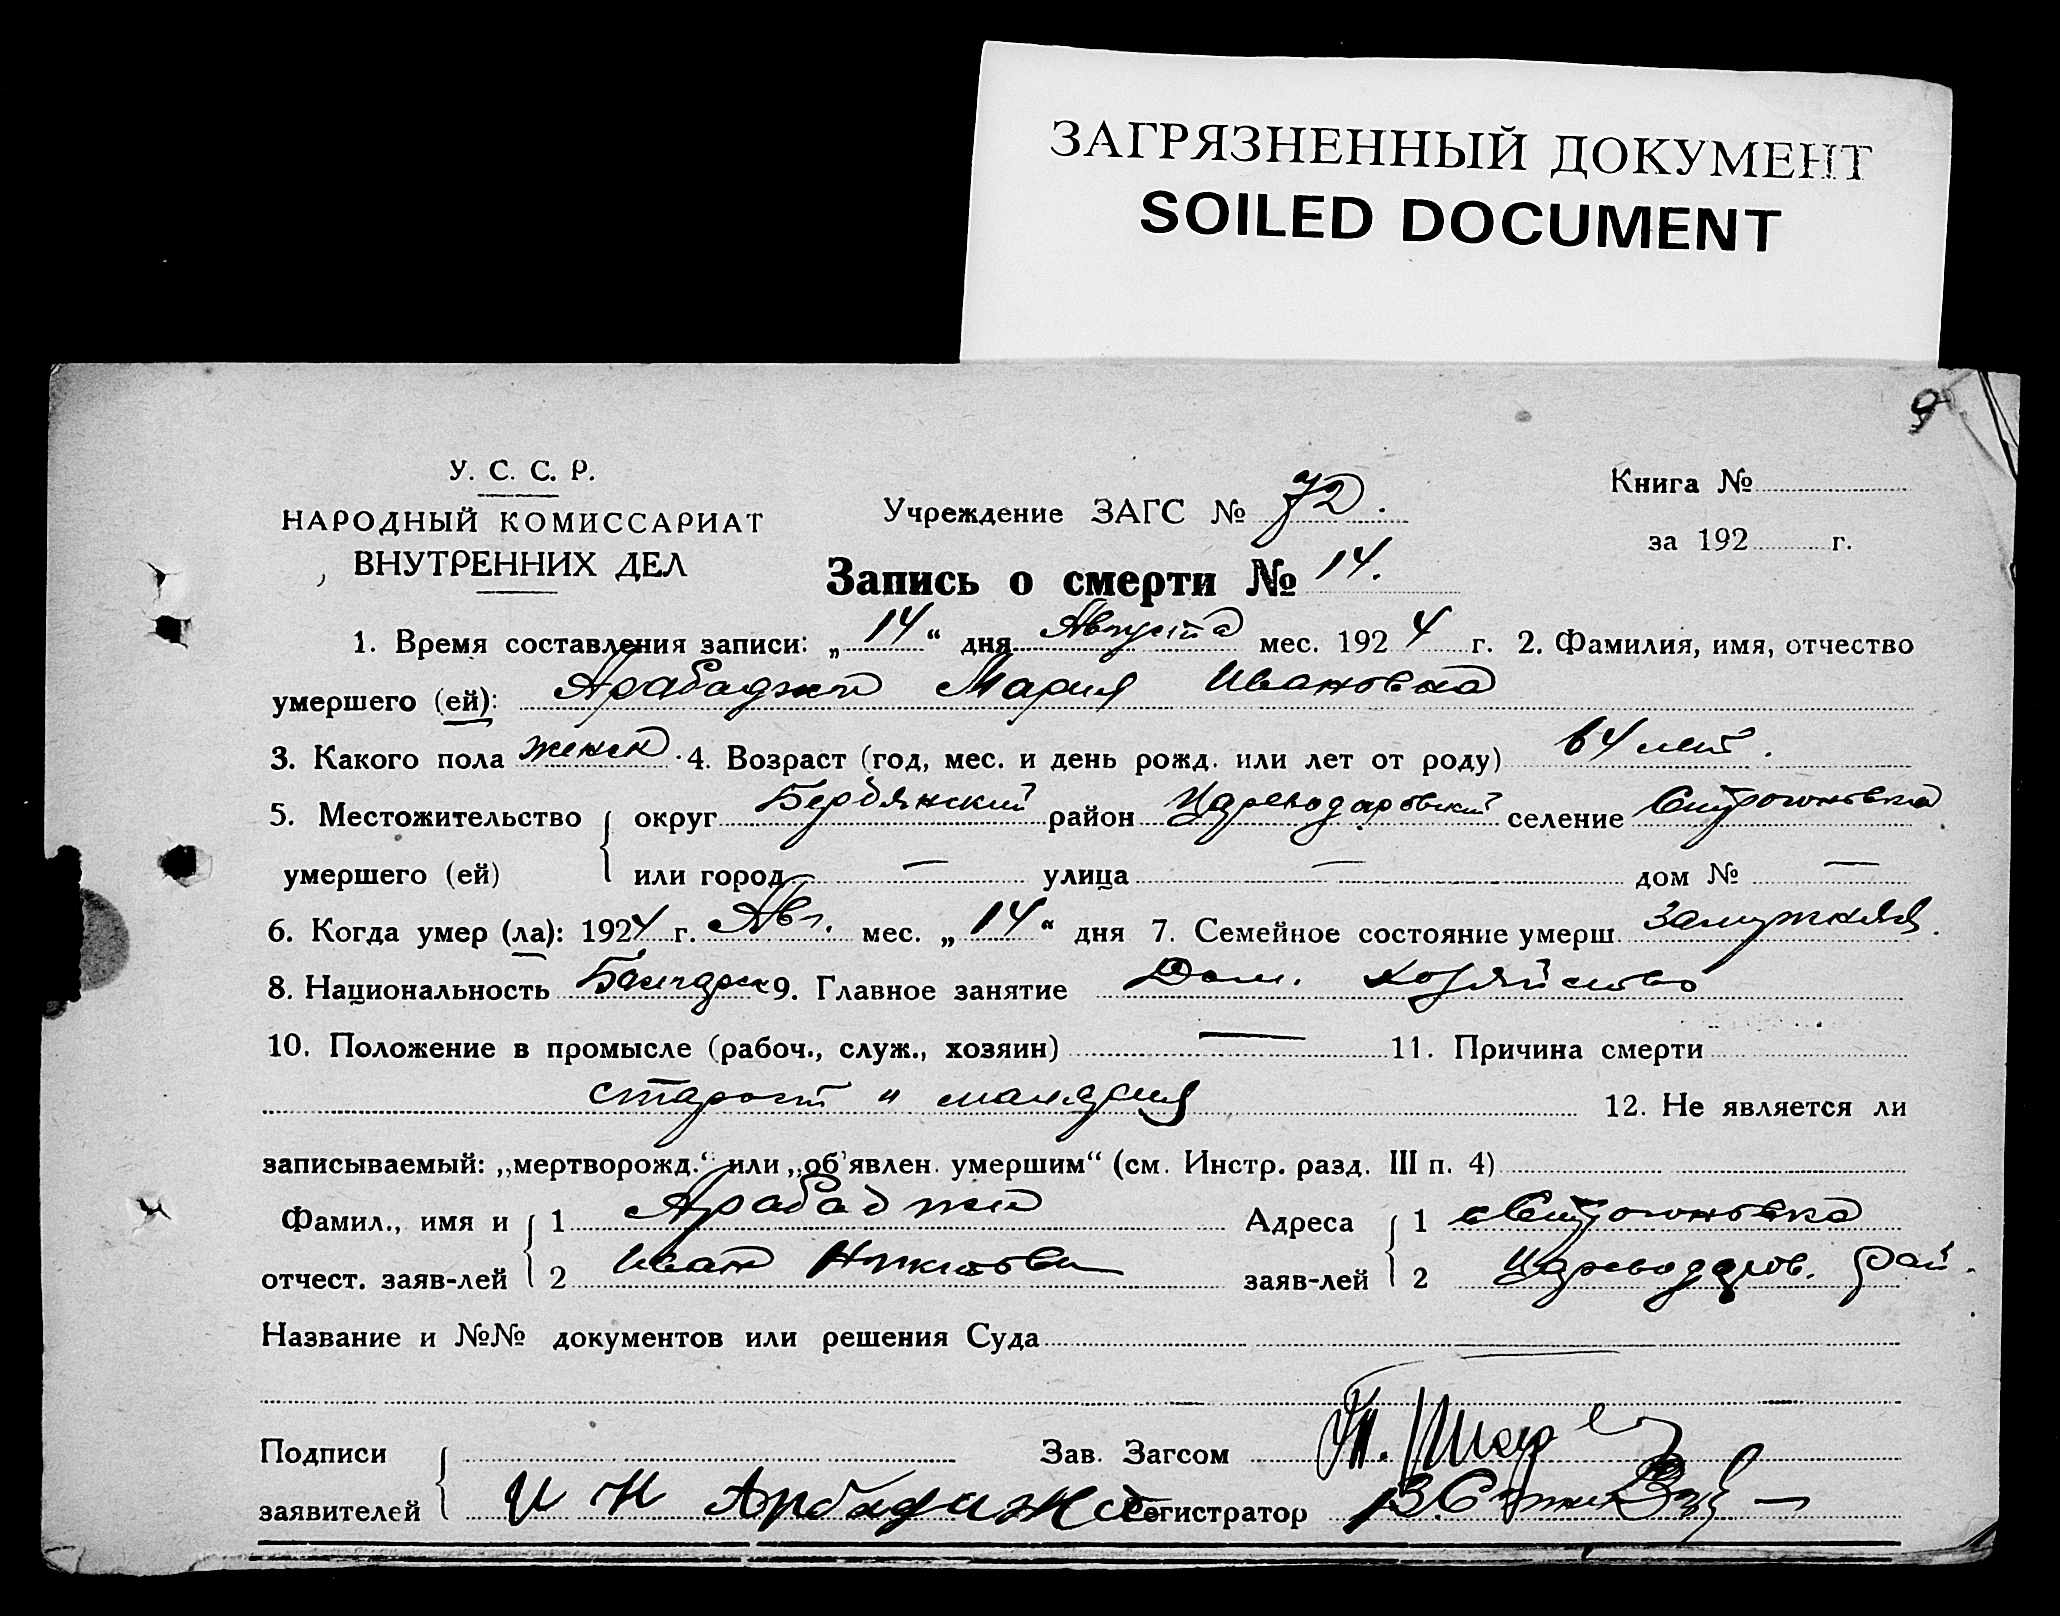 ЗАГРЯЗНЕННЫЙ ДОКУМЕНТ
SOILED DOCUMENT
9
У. С. С. Р.
НАРОДНЫЙ КОМИССАРИАТ
ВНУТРЕННИХ ДЕЛ
Учреждение ЗАГС № 72.
Книга №
за 192 г.
Запись о смерти № 14.
1. Время составления записи: „14“ дня Августа мес. 1924 г. 2. Фамилия, имя, отчество
умершего (ей): Арабаджи Мария Ивановна
3. Какого пола женск. 4. Возраст (год, мес. и день рожд. или лет от роду) 64 лет.
5. Местожительство округ Бердянский район Цареводаровский селение Строгоновка
умершего (ей) или город — улица — дом № —
6. Когда умер (ла): 1924 г. Авг. мес. „14“ дня 7. Семейное состояние умерш. Замужняя.
8. Национальность Болгарк 9. Главное занятие Дом. хозяйство
10. Положение в промысле (рабоч., служ., хозяин) — 11. Причина смерти
старост и малярия 12. Не является ли
записываемый: „мертворожд.“ или „об'явлен. умершим“ (см. Инстр. разд. III п. 4)
Фамил., имя и 1 Арабаджи Адреса 1 с Строгоновка
отчест. заяв-лей 2 Иван Никитови заяв-лей 2 Цареводаров. рай.
Название и №№ документов или решения Суда
Подписи Зав. Загсом
заявителей И Н Арбаджи Регистратор